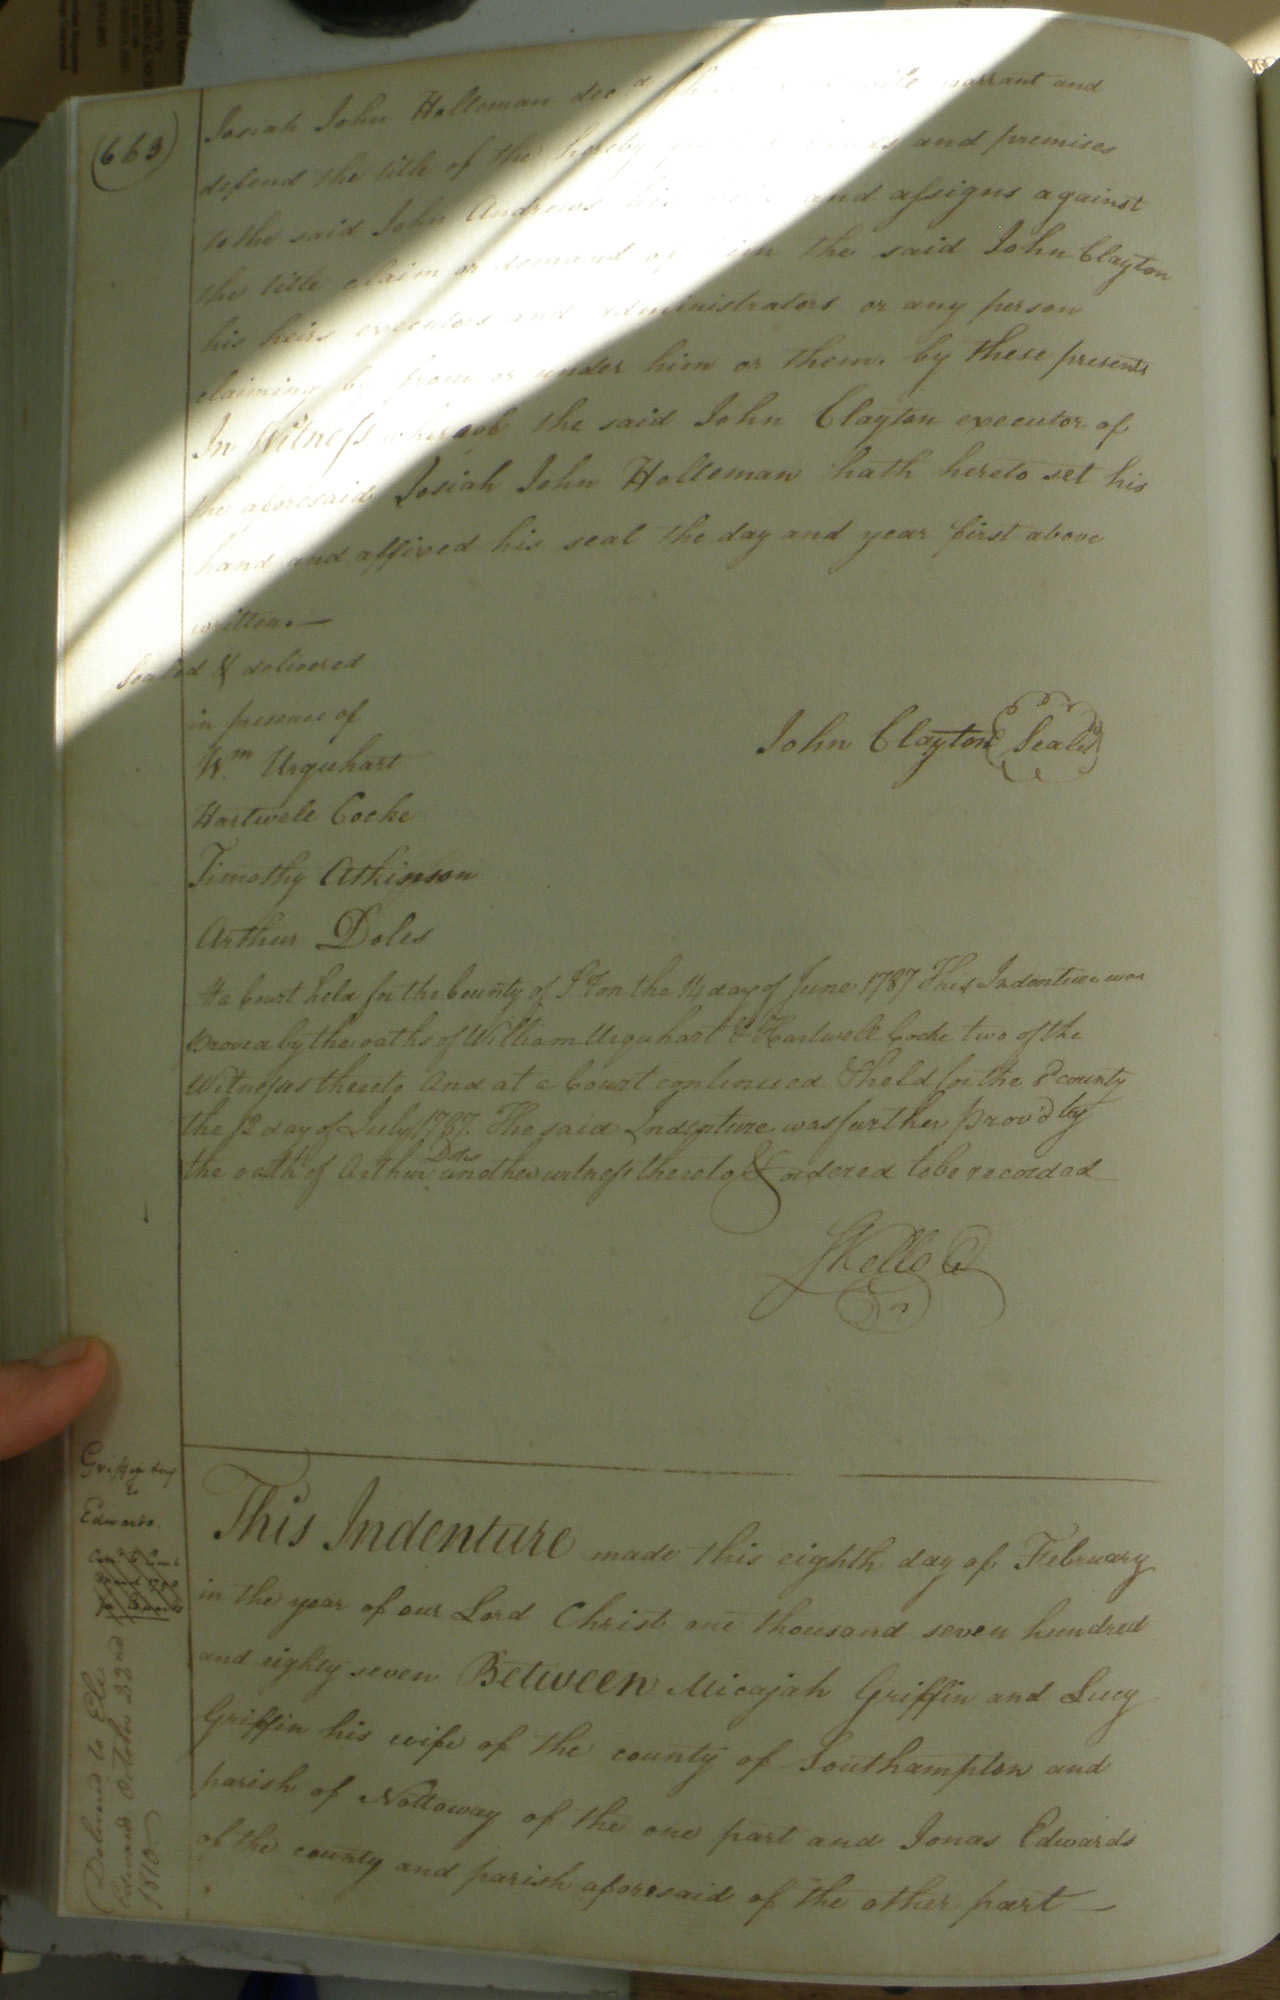 (663)
Josiah John Holleman dec.d warrant and
defend the title of the hereby and premises
to the said John Andrews his and assigns against
the title claim or demand of him the said John Clayton
his heirs executors and administrators or any person
claiming by from or under him or them. by these presents
In Witness whereof the said John Clayton executor of
the aforesaid Josiah John Holleman hath hereto set his
hand and affixed his seal the day and year first above
written.—
Sealed & delivered
in presence of
John Clayton Seal
Wm. Urquhart
Hartwell Cocke
Timothy Atkinson
Arthur Doles
At a Court held for the County of S.ton the 14 day of June 1787 This Indenture was
proved by the oaths of William Urquhart & Hartwell Cocke two of the
Witnesses thereto And at a Court continued & held for the sd county
the day of July 1787. The said Indenture was further prov'd by
the oath of Arthur Doles another witness thereto & ordered to be recorded
Griffin
to
Edwards
This Indenture made this eighth day of February
in the year of our Lord Christ one thousand seven hundred
and eighty seven Between Micajah Griffin and Lucy
Griffin his wife of the county of Southampton and
parish of Nottoway of the one part and Jonas Edwards
of the county and parish aforesaid of the other part —
Deliverd to Eli
Edwards October 22nd
1810